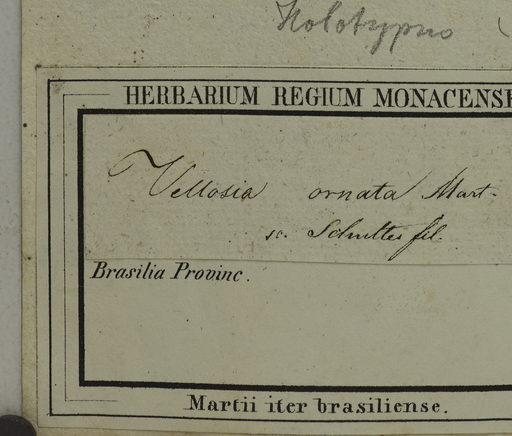 Holotypus (
HERBARIUM REGIUM MONACENSE
Vellosia ornata Mart.
sc. Schultes fil.
Brasilia Provinc.
Martii iter brasiliense.